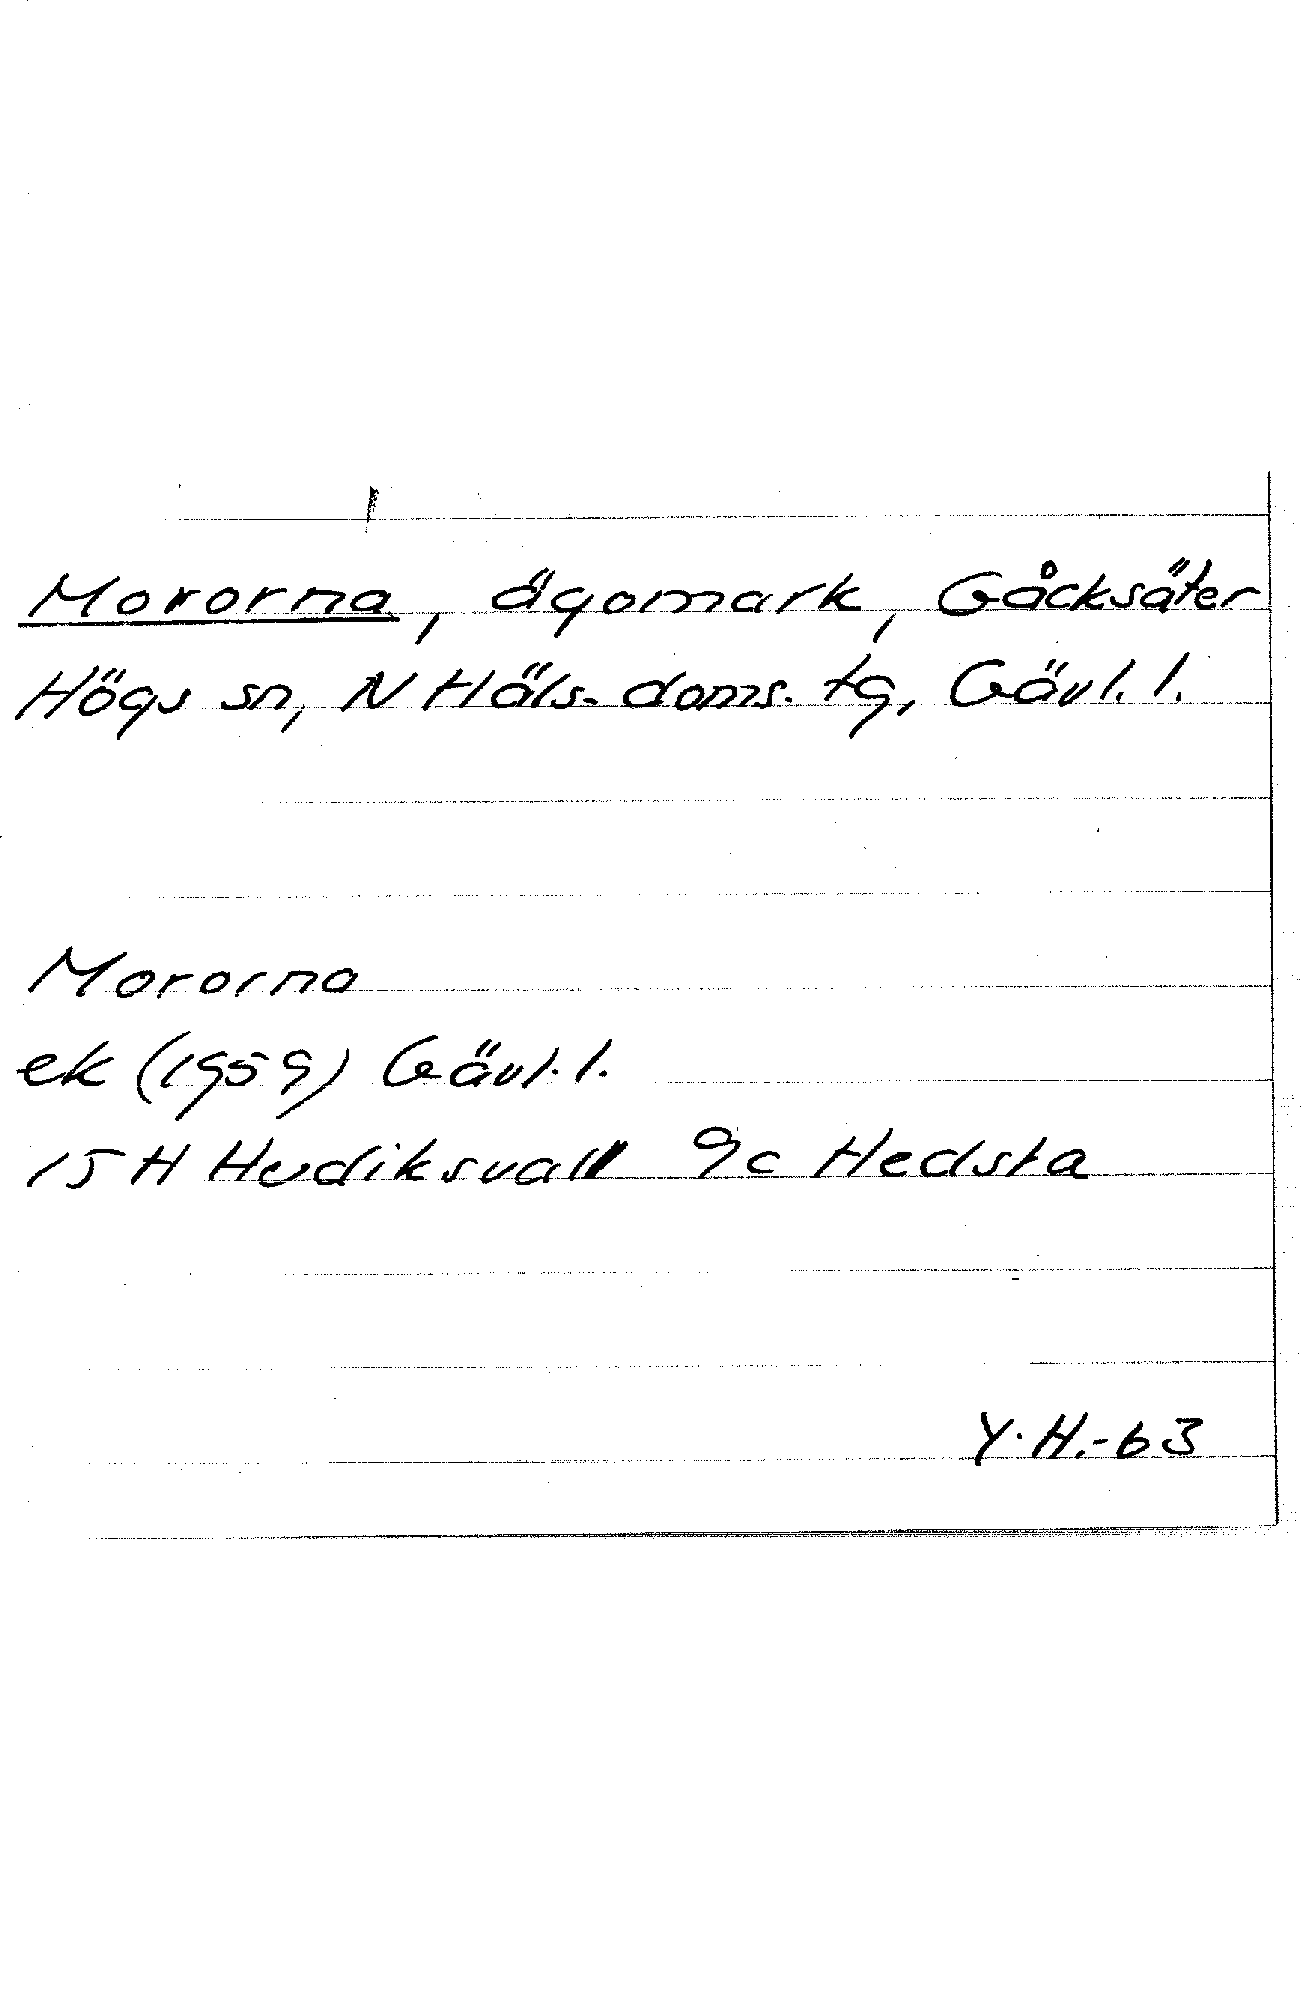 Mororna, ägomark, Gåcksäter
Högs sn, N Häls. doms. tg, Gävl. l.
Mororna
ek (1959) Gävl. l.
15 H Hudiksvall 9c Hedsta
Y. H. -63